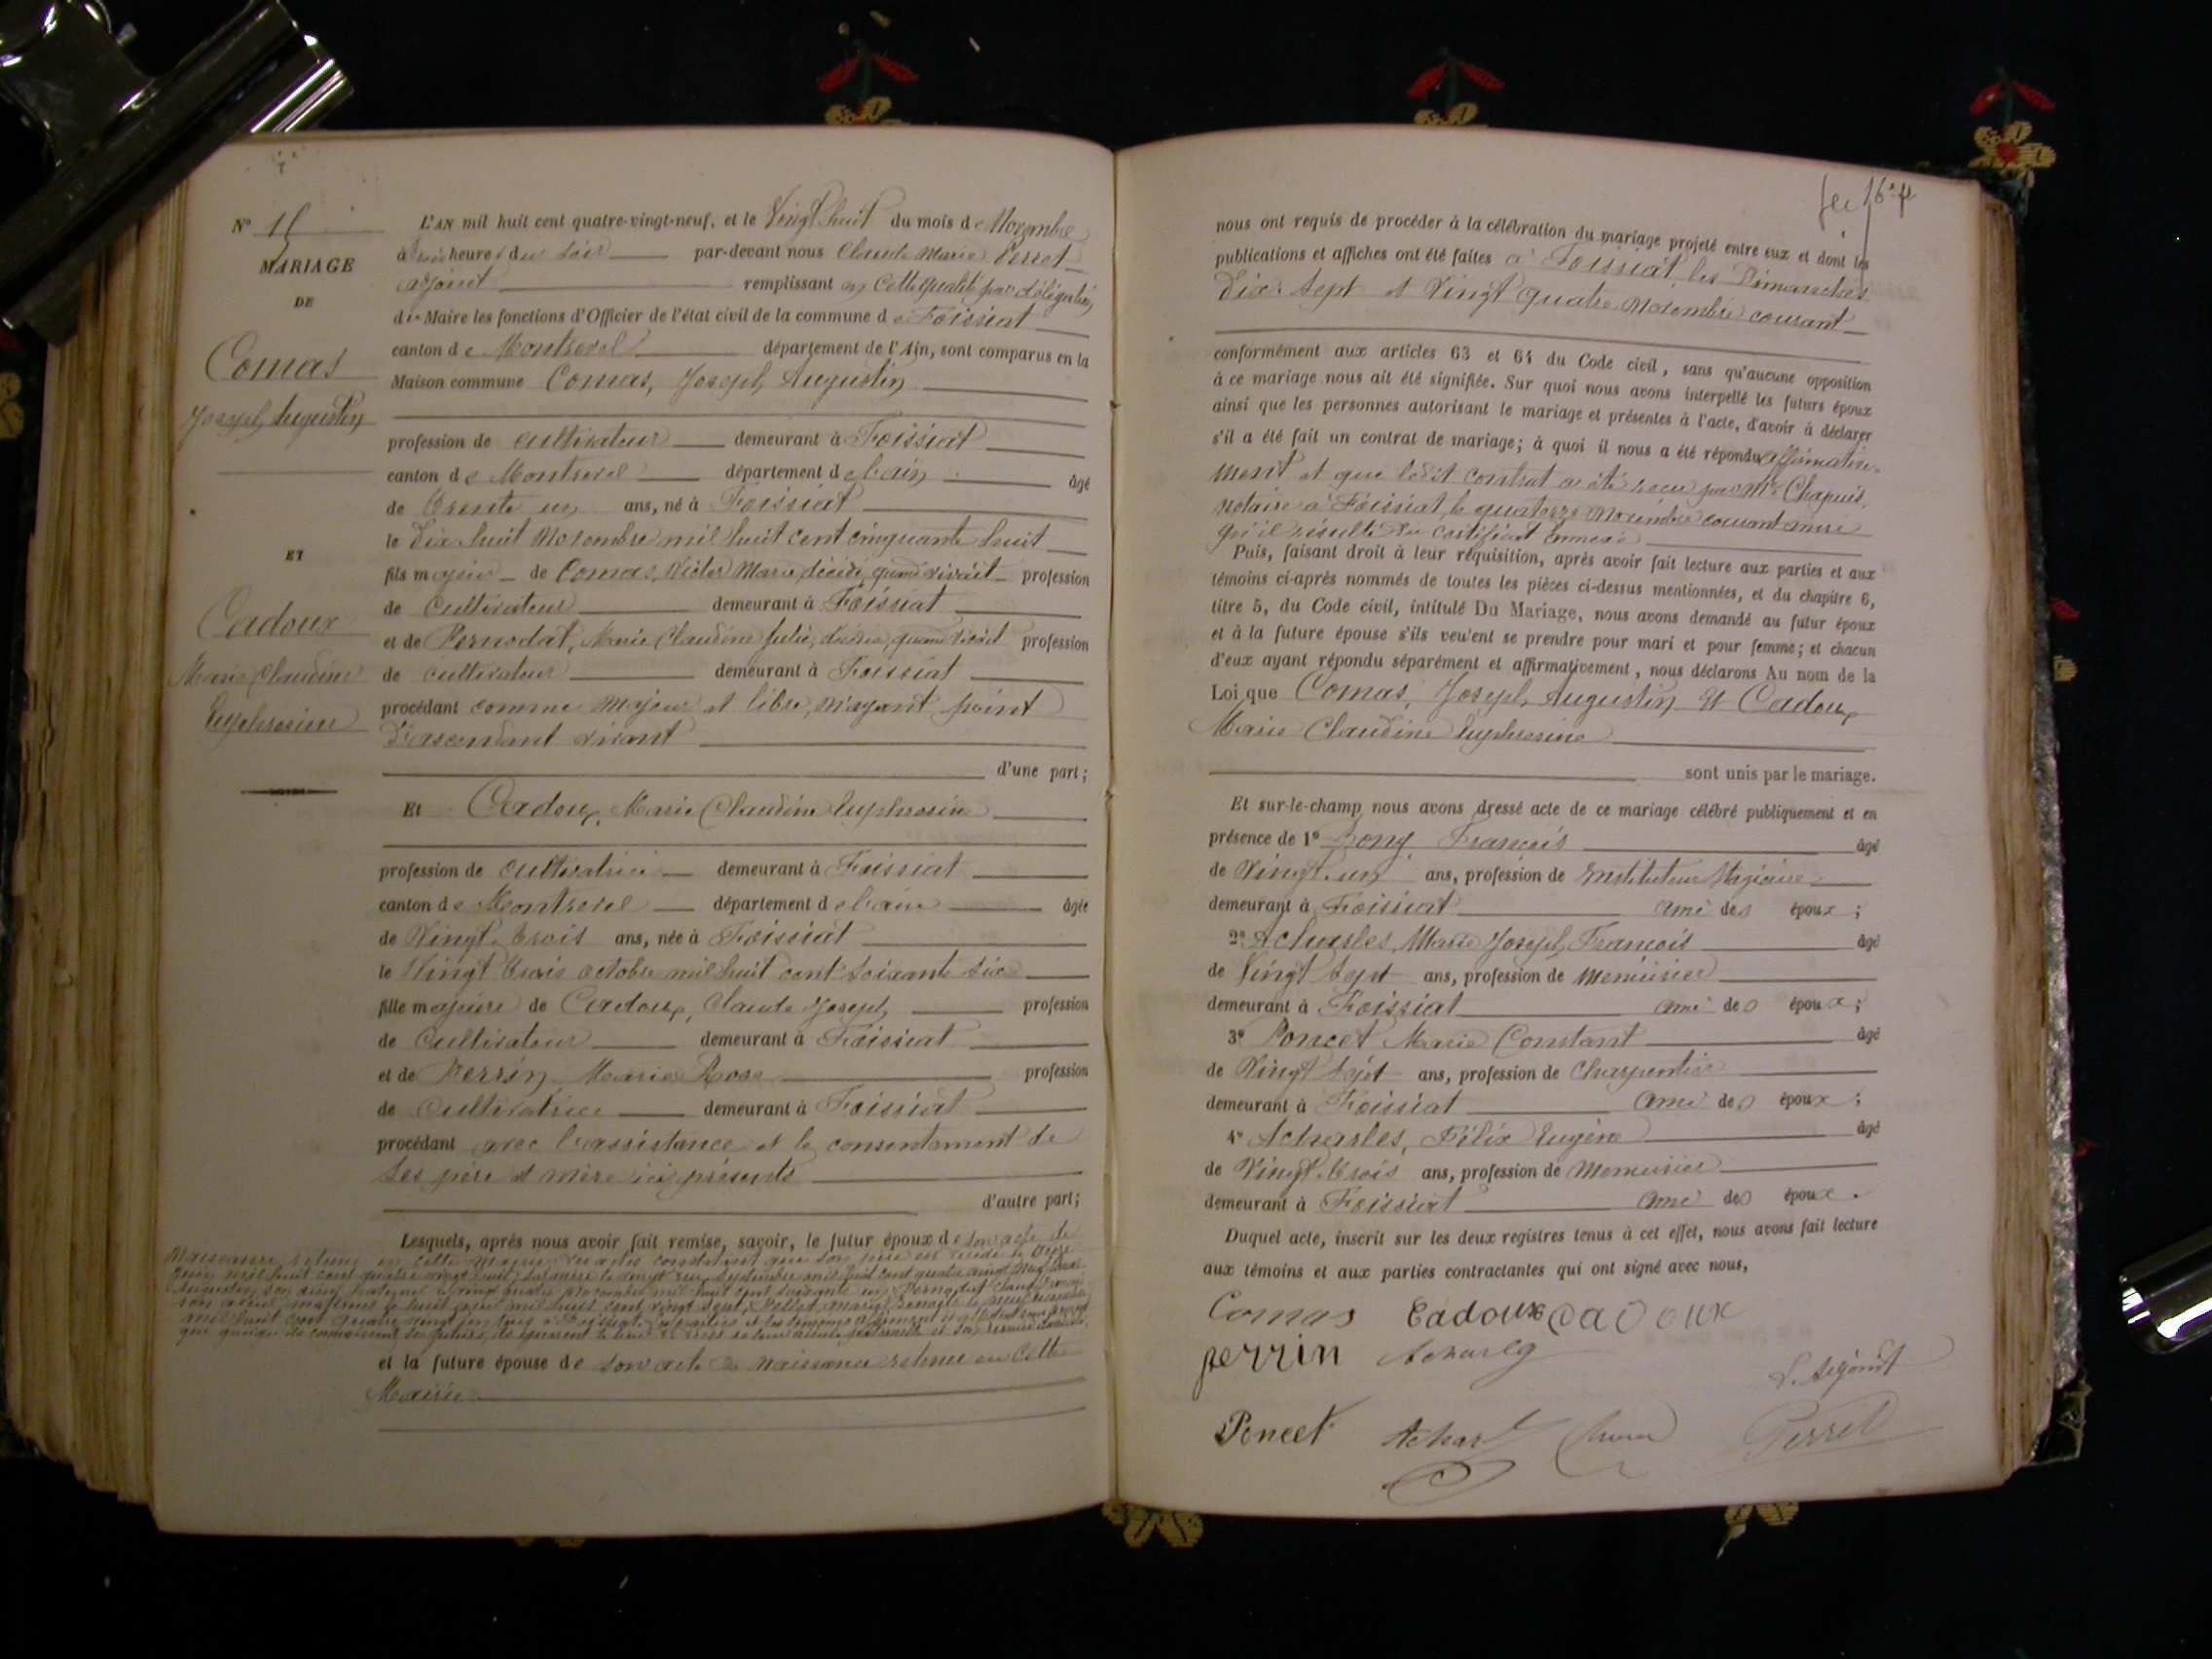 N° 15
MARIAGE
DE
Comas
Joseph Augustin
ET
Cadoux
Marie Claudine
Euphrosine
L'AN mil huit cent quatre-vingt-neuf, et le Vingt huit du mois de Novembre
à trois heures du soir par-devant nous Claude Marie Perret
adjoint remplissant en cette qualité par délégation
du Maire les fonctions d'Officier de l'état civil de la commune de Foissiat
canton de Montrevel département de l'Ain, sont comparus en la
Maison commune Comas, Joseph Augustin
profession de cultivateur demeurant à Foissiat
canton de Montrevel département de l'ain âgé
de trente un ans, né à Foissiat
le Dix huit Novembre mil huit cent cinquante huit
fils majeur de Comas, Victor Marie décédé, quand vivait profession
de Cultivateur demeurant à Foissiat
et de Pernodat, Marie Claudine Julie, décédée, quand vivait profession
de cultivateur demeurant à Foissiat
procédant comme Majeur et libre, n'ayant point
d'ascendant vivant
d'une part;
Et Cadoux, Marie Claudine Euphrosine
profession de cultivatrice demeurant à Foissiat
canton de Montrevel département de l'ain âgée
de Vingt trois ans, née à Foissiat
le Vingt trois octobre mil huit cent soixante six
fille majeure de Cadoux, Claude Joseph profession
de Cultivateur demeurant à Foissiat
et de Perrin Marie Rose profession
de Cultivatrice demeurant à Foissiat
procédant avec l'assistance et le consentement de
ses père et mère ici présents
d'autre part;
Lesquels, après nous avoir fait remise, savoir, le futur époux de son acte de
Naissance retenu en cette Mairie des actes constatant que son père est décédé le
mil huit cent quatre vingt huit, sa mère le vingt septembre mil huit cent quatre vingt
Augustin, son aïeul paternel le vingt quatre novembre mil huit cent soixante un, Pernodat Claude
son aïeul maternel le huit mil huit cent vingt sept,
mil huit cent quatre vingt un tous à Foissiat, les parties et les témoins affirment
et la future épouse de son acte de naissance retenu en cette
Mairie
nous ont requis de procéder à la célébration du mariage projeté entre eux et dont les
publications et affiches ont été faites à Foissiat, les Dimanches
Dix sept et Vingt quatre Novembre courant
conformément aux articles 63 et 64 du Code civil, sans qu'aucune opposition
à ce mariage nous ait été signifiée. Sur quoi nous avons interpellé les futurs époux
ainsi que les personnes autorisant le mariage et présentes à l'acte, d'avoir à déclarer
s'il a été fait un contrat de mariage; à quoi il nous a été répondu affirmative-
ment et que ledit contrat a été reçu par Me Chapuis,
notaire à Foissiat, le quatorze Novembre courant ainsi
qu'il résulte du certificat annexé
Puis, faisant droit à leur réquisition, après avoir fait lecture aux parties et aux
témoins ci-après nommés de toutes les pièces ci-dessus mentionnées, et du chapitre 6,
titre 5, du Code civil, intitulé Du Mariage, nous avons demandé au futur époux
et à la future épouse s'ils veulent se prendre pour mari et pour femme; et chacun
d'eux ayant répondu séparément et affirmativement, nous déclarons Au nom de la
Loi que Comas, Joseph Augustin et Cadoux
Marie Claudine Euphrosine
sont unis par le mariage.
Et sur-le-champ nous avons dressé acte de ce mariage célébré publiquement et en
présence de 1° François âgé
de Vingt un ans, profession de Instituteur Stagiaire
demeurant à Foissiat ami des époux;
2° Acharles, Marie Joseph François âgé
de Vingt sept ans, profession de Menuisier
demeurant à Foissiat ami des époux;
3° Poncet Marie Constant âgé
de Vingt sept ans, profession de Charpentier
demeurant à Foissiat ami des époux;
4° Acharles, Félix Eugène âgé
de Vingt trois ans, profession de Menuisier
demeurant à Foissiat ami des époux.
Duquel acte, inscrit sur les deux registres tenus à cet effet, nous avons fait lecture
aux témoins et aux parties contractantes qui ont signé avec nous,
Comas Cadoux Cadoux
perrin
L. Adjoint
Poncet Perret